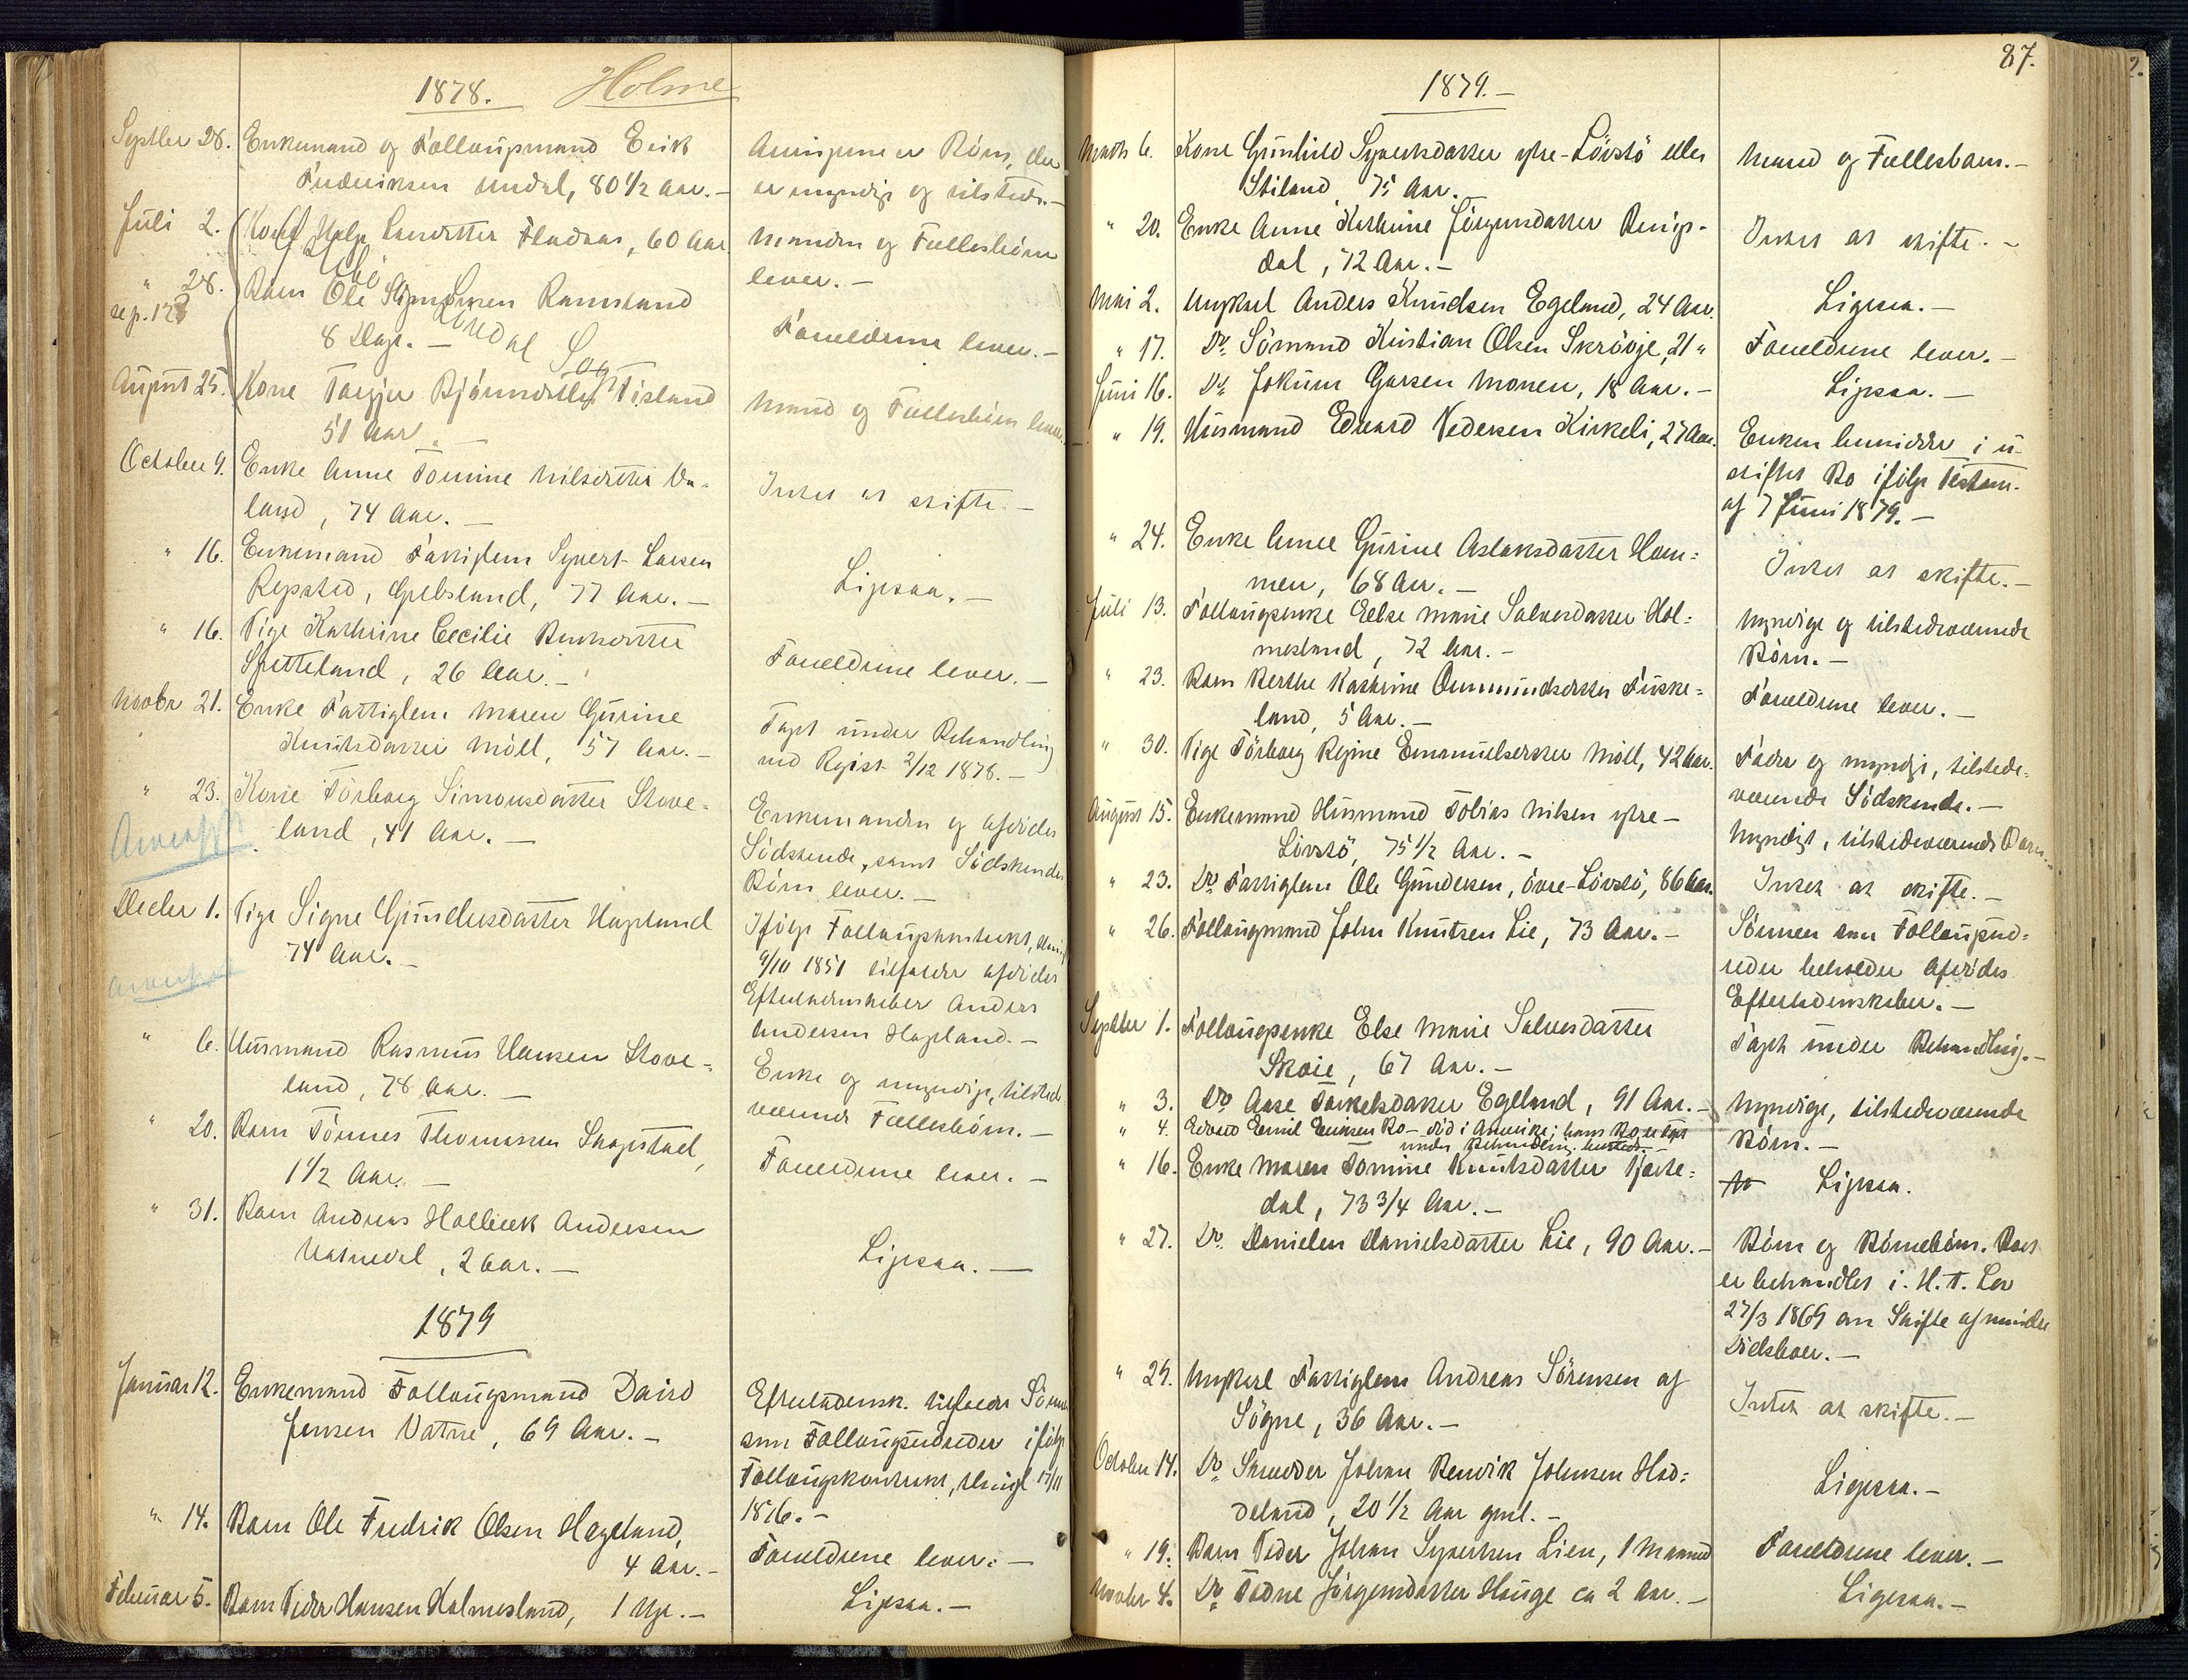 1878. Holme
Septber 28. Enkemand og Follaugsmand Erik
Frederiksen Undal, 80 1/2 Aar. —
er myndige og tilstede. —
Juli 2. Kone Helge Fladaas, 60 Aar
Manden og Fællesbørn
lever. —
" 28. Barn Ole Ramsland
8 Dage. —
Forældrene lever. —
Sogn
August 25. Kone Tisland
51 Aar. —
Mand og Fællesbørn lever.
October 9. Enke Anne Tomine Nilsdatter
land, 74 Aar. —
Intet at skifte. —
" 16. Enkemand Fattiglem Syvert Larsen
Repsted, Grebsland, 77 Aar. —
Ligesaa. —
" 16. Pige Kathrine Cecilie
Spetteland, 26 Aar. —
Forældrene lever. —
Novbr 21. Enke Fattiglem Maren Gurine
Knutsdatter Möll, 57 Aar. —
Tagt under Behandling
ved Regist. 2/12 1878. —
" 23. Kone Törborg Simonsdatter Stove-
land, 41 Aar. —
Enkemanden og afdödes
Södskende, samt Södskende
Børn lever. —
Decbr 1. Pige Signe Gundersdatter Hagland
74 Aar. —
Ifölge Follaugskontrakt,
9/10 1851 tilfalder afdödes
Efterladenskaber Anders
Andersen Hagland. —
" 6. Husmand Rasmus Hansen Stove-
land, 78 Aar. —
Enke og myndige, tilstede
værende Fællesbørn. —
" 20. Barn Tönnes Thomassen Skagestad,
1 1/2 Aar. —
Forældrene lever. —
" 31. Barn Andreas Holbeck Andersen
Vatnedal, 2 Aar. —
Ligesaa. —
1879
Januar 12. Enkemand Follaugsmand David
Jensen Vatne, 69 Aar. —
Efterladensk. tilfalder Sönnen
som Follaugsudreder ifölge
Follaugskontrakt, thingl 17/11
1876. —
" 14. Barn Ole Fredrik Olsen Hageland,
4 Aar. —
Forældrene lever. —
Februar 5. Barn Peder Hansen Holmesland, 1 Uge. —
Ligesaa. —
87.
1879. —
Marts 6. Kone Gunhild Syvertsdatter ytre-Lövstö eller
Stiland, 75 Aar. —
Mand og Fællesbarn. —
" 20. Enke Anne Kathrine Jörgensdatter
dal, 72 Aar. —
Intet at skifte. —
Mai 2. Ungkarl Anders Knudsen Egeland, 24 Aar.
Ligesaa. —
" 17. Do. Sömand Kristian Olsen Skröyje, 21 "
Forældrene lever. —
Juni 16. Do. Jokum Garsen Monen, 18 Aar. —
Ligesaa. —
" 19. Husmand Edvard Pedersen Kirkeli, 27 Aar.
Enken hensidder i u-
skiftet Bo ifölge Testam.
af 7 Juni 1879. —
" 24. Enke Anne Gurine Aslaksdatter Ham-
men, 68 Aar. —
Intet at skifte. —
Juli 13. Follaugsenke Else Marie Salvesdatter Hol-
mesland, 72 Aar. —
Myndige og tilstedeværende
Børn. —
" 23. Barn Berthe Kathrine Ommundsdatter Fuske-
land, 5 Aar. —
Forældrene lever. —
" 30. Pige Törborg Regine Emanuelsdatter Möll, 42 Aar.
Fader og myndige, tilstede-
værende Södskende. —
August 15. Enkemand Husmand Tobias Nilsen ytre-
Lövstö, 75 1/2 Aar. —
Myndigt, tilstedeværende Barn. —
" 23. Do. Fattiglem Ole Gundersen, övre-Lövstö, 86 Aar.
Intet at skifte. —
" 26. Follaugmand John Knutsen Lie, 73 Aar. —
Sönnen som Follaugsud-
reder beholder Afdödes
Efterladenskaber. —
Septber 1. Follaugsenke Else Marie Salvesdatter
Skoie, 67 Aar. —
Tagt under Behandling. —
" 3. Do. Aase Torkelsdatter Egeland, 91 Aar. —
Myndige, tilstedeværende
Børn. —
" 4. Edvard Emil Eriksen Bo — död i Amerika; hans Bo er tagt
under Behandling
" 16. Enke Maren Tomine Knutsdatter
dal, 73 3/4 Aar. —
Ligesaa.
" 27. Do. Danielen Danielsdatter Lie, 90 Aar. —
Börn og Börnebörn. Boet
er behandlet i H. t. Lov
27/3 1869 om Skifte af mindre
Dödsboer. —
" 29. Ungkarl Fattiglem Andreas Sörensen af
Sögne, 36 Aar. —
Intet at skifte. —
October 14. Do. Skrædder Johan Benvik Johnsen Hod-
deland, 20 1/2 Aar gml. —
Ligesaa. —
" 19. Barn Peder Johan Syvertsen Lien, 1 Maaned
Forældrene lever. —
Novbr 4. Do. Tedne Jörgensdatter Hauge ca 2 Aar. —
Ligesaa. —